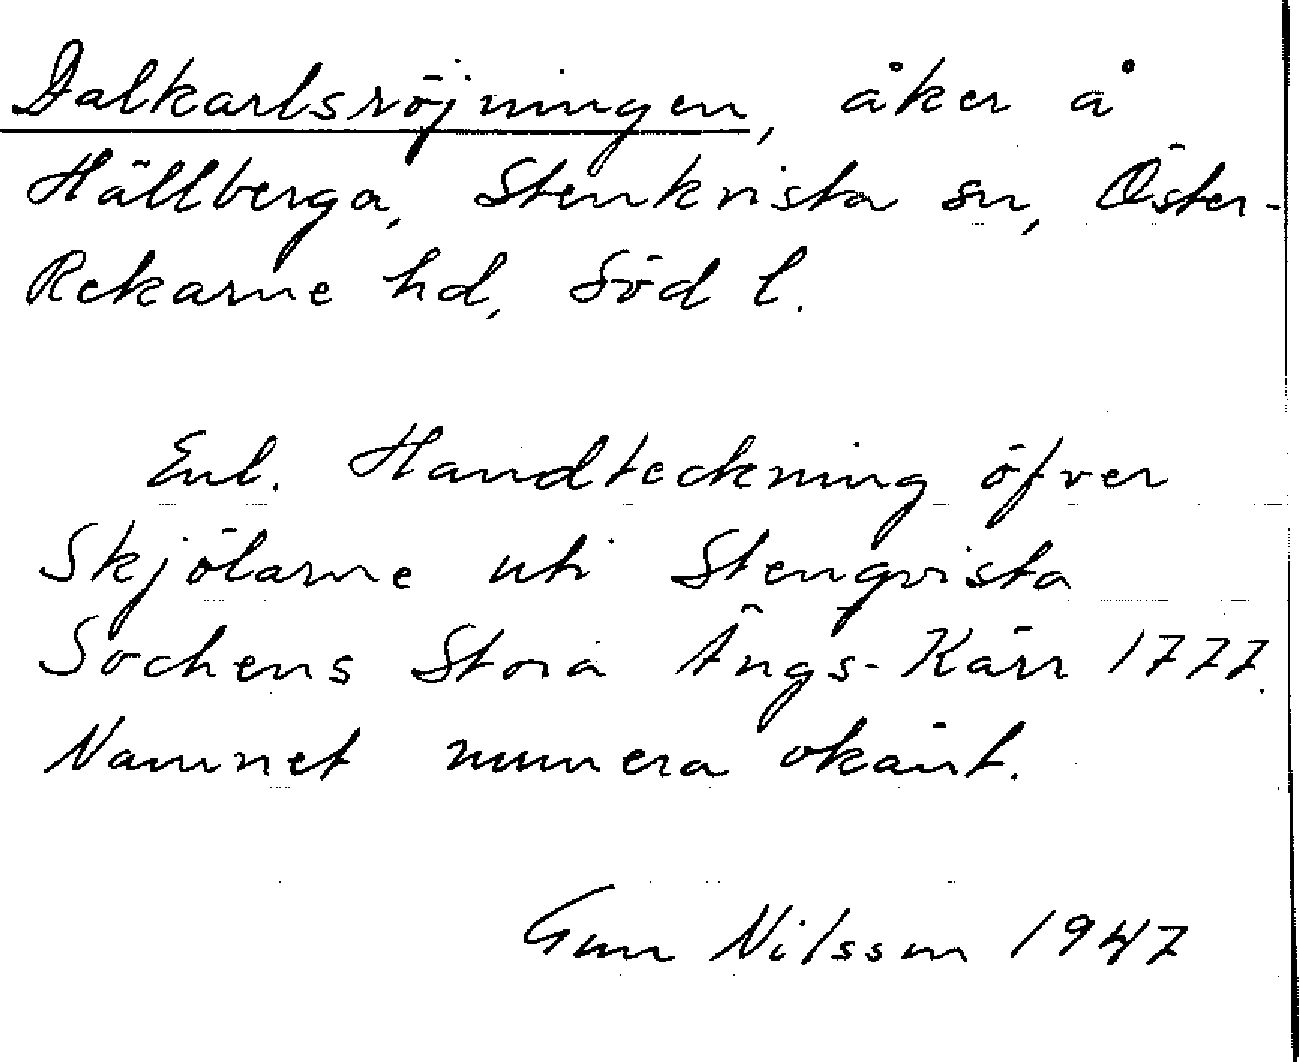 Dalkarlsröjningen, åker å
Hällberga, Stenkvista sn, Öster-
Rekarne hd, Söd l.
Enl. Handteckning öfver
Skjölarne uti Stenqvista
Sochens Stora Ängs-Kärr 1777.
Namnet numera okänt.
Gun Nilsson 1947